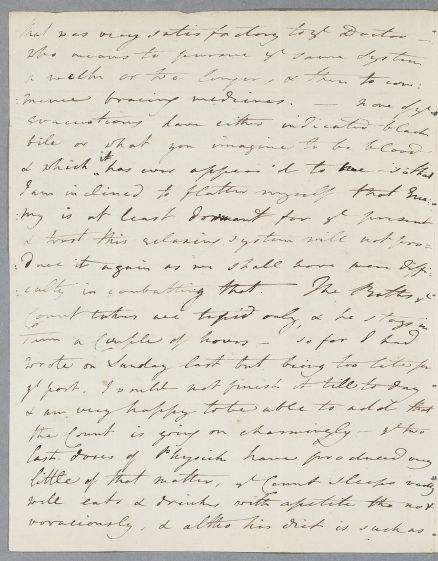 that was very satisfactory to yᵉ Doctor —
who means to pursue yᵉ same System
a week or two longer, & then to com:
:mence bracing medicines. — none of yᵉ
evacuations have either indicated black
bile or what you imagine to be blood
& which it has ever appear'd to me so that
I am inclined to flatter myself that Ene:
:my is at least dormant for yᵉ present
& trust this relaxing system will not pro=
:duce it again as we shall have more diffi:
:culty in combatting that. The Baths yᵉ
Count takes are tepid only, & he stays in
them a Couple of hours — so far I had
wrote on Sunday last but being too late for
yᵉ post. I would not finish it till to day
& am very happy to be able to add that
the Count is going on charmingly — yᵉ two
last doses of Physick have produced very
little of that matter, yᵉ Count sleeps
well eats & drinks with apetite tho not
voraciously, & altho his diet is such as